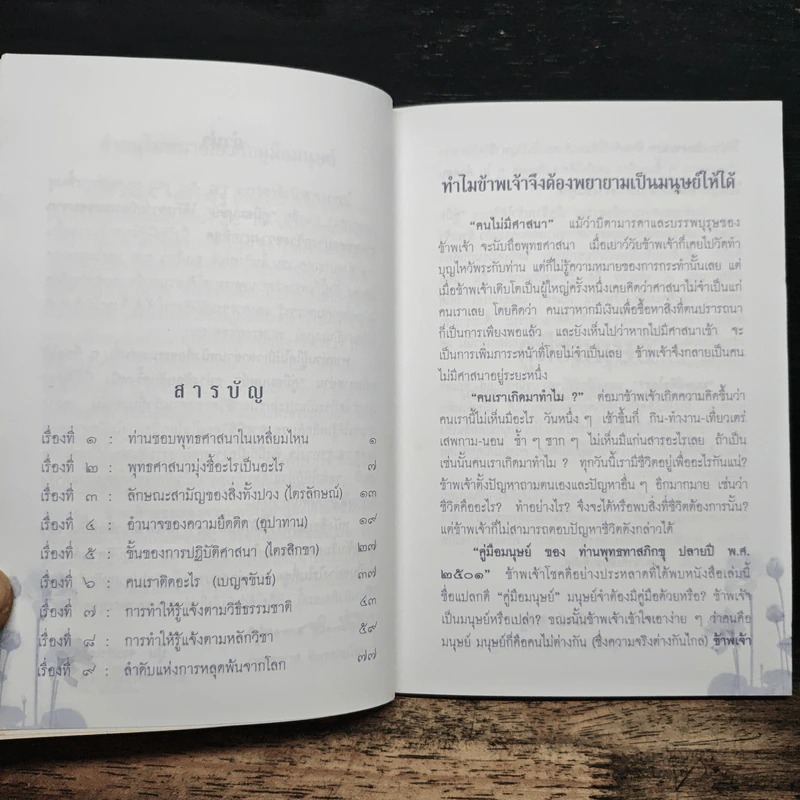 สารบัญ
เรื่องที่ ๑ : ท่านชอบพุทธศาสนาในเหลี่ยมไหน ๑
เรื่องที่ ๒ : พุทธศาสนามุ่งชี้อะไรเป็นอะไร ๗
เรื่องที่ ๓ : ลักษณะสามัญของสิ่งทั้งปวง (ไตรลักษณ์) ๑๓
เรื่องที่ ๔ : อำนาจของความยึดติด (อุปาทาน) ๑๙
เรื่องที่ ๕ : ขั้นของการปฏิบัติศาสนา (ไตรสิกขา) ๒๗
เรื่องที่ ๖ : คนเราติดอะไร (เบญจขันธ์) ๓๗
เรื่องที่ ๗ : การทำให้รู้แจ้งตามวิธีธรรมชาติ ๔๓
เรื่องที่ ๘ : การทำให้รู้แจ้งตามหลักวิชา ๕๙
เรื่องที่ ๙ : ลำดับแห่งการหลุดพ้นจากโลก ๗๗
ทำไมข้าพเจ้าจึงต้องพยายามเป็นมนุษย์ให้ได้
"คนไม่มีศาสนา" แม้ว่าบิดามารดาและบรรพบุรุษของ
ข้าพเจ้า จะนับถือพุทธศาสนา เมื่อเยาว์วัยข้าพเจ้าก็เคยไปวัดทำ
บุญไหว้พระกับท่าน แต่ก็ไม่รู้ความหมายของการกระทำนั้นเลย แต่
เมื่อข้าพเจ้าเติบโตเป็นผู้ใหญ่ครั้งหนึ่งเคยคิดว่าศาสนาไม่จำเป็นแก่
คนเราเลย โดยคิดว่า คนเราหากมีเงินเพื่อซื้อหาสิ่งที่ตนปรารถนา
ก็เป็นการเพียงพอแล้ว และยังเห็นไปว่าหากไปมีศาสนาเข้า จะ
เป็นการเพิ่มภาระหน้าที่โดยไม่จำเป็นเลย ข้าพเจ้าจึงกลายเป็นคน
ไม่มีศาสนาอยู่ระยะหนึ่ง
"คนเราเกิดมาทำไม ?" ต่อมาข้าพเจ้าเกิดความคิดขึ้นว่า
คนเรานี้ไม่เห็นมีอะไร วันหนึ่ง ๆ เช้าขึ้นก็ กิน-ทำงาน-เที่ยวเตร่
เสพกาม-นอน ซ้ำ ๆ ซาก ๆ ไม่เห็นมีแก่นสารอะไรเลย ถ้าเป็น
เช่นนั้นคนเราเกิดมาทำไม ? ทุกวันนี้เรามีชีวิตอยู่เพื่ออะไรกันแน่?
ข้าพเจ้าตั้งปัญหาถามตนเองและปัญหาอื่น ๆ อีกมากมาย เช่นว่า
ชีวิตคืออะไร? ทำอย่างไร? จึงจะได้หรือพบสิ่งที่ชีวิตต้องการนั้น?
แต่ข้าพเจ้าก็ไม่สามารถตอบปัญหาชีวิตดังกล่าวได้
"คู่มือมนุษย์ ของ ท่านพุทธทาสภิกขุ ปลายปี พ.ศ.
๒๕๐๑" ข้าพเจ้าโชคดีอย่างประหลาดที่ได้พบหนังสือเล่มนี้
ชื่อแปลกดี "คู่มือมนุษย์" มนุษย์จำต้องมีคู่มือด้วยหรือ? ข้าพเจ้า
เป็นมนุษย์หรือเปล่า? ขณะนั้นข้าพเจ้าเข้าใจเอาง่าย ๆ ว่าคนคือ
มนุษย์ มนุษย์ก็คือคนไม่ต่างกัน (ซึ่งความจริงต่างกันไกล) ข้าพเจ้า